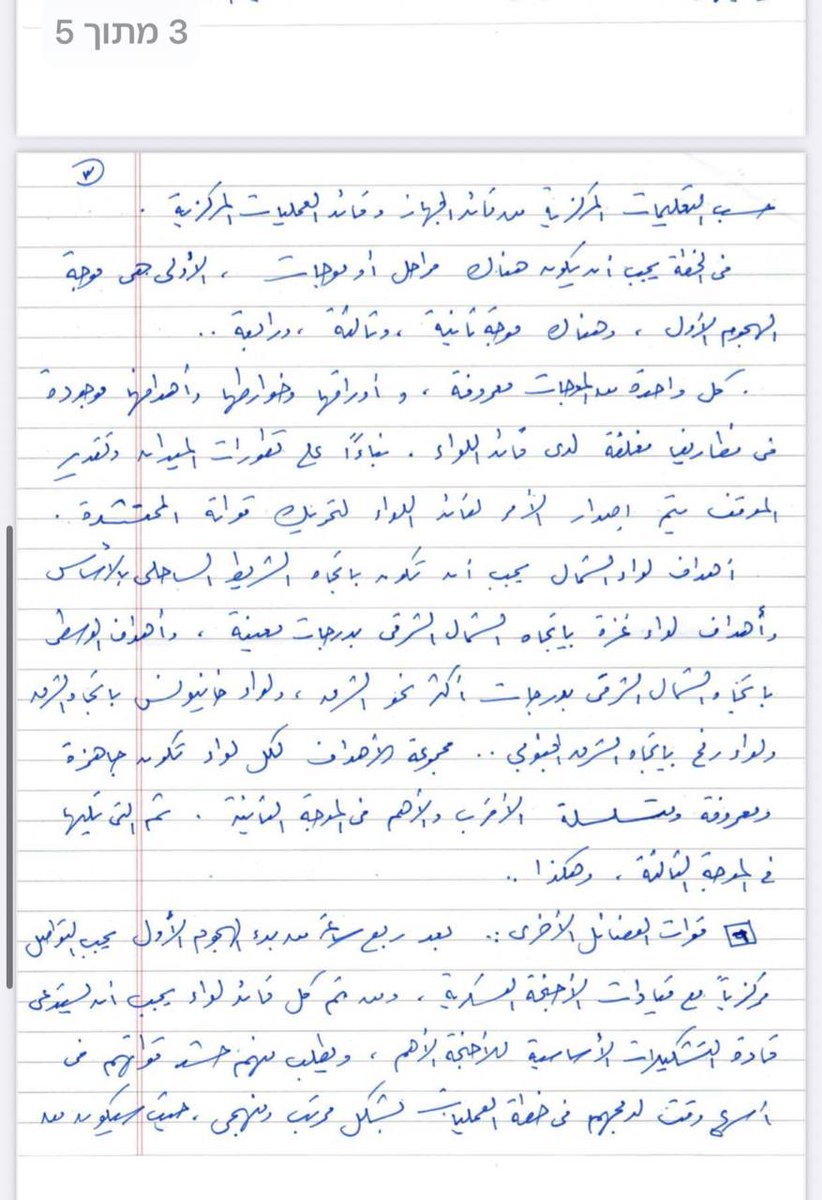 3 מתוך 5
٣
حسب التعليمات المركزية من قائد الجهاز وقائد العمليات المركزية .
في الخطة يجب أن يكون هناك مراحل أو موجات ، الأولى هي موجة
الهجوم الأول ، وهناك موجة ثانية ، وثالثة ، ورابعة ..
. كل واحدة من الموجات معروفة ، و أوراقها وخوارطها وأهدافها موجودة
في مظاريف مغلقة لدى قائد اللواء . بناءًا على تطورات الميدان وتقدير
الموقف يتم إصدار الأمر لقائد اللواء لتحريك قواته المحتشدة .
أهداف لواء الشمال يجب أن تكون باتجاه الشريط الساحلي بالأساس
وأهداف لواء غزة باتجاه الشمال الشرقي بدرجات معينة ، وأهداف الوسطى
باتجاه الشمال الشرقي بدرجات أكثر نحو الشرق ، ولواء خانيونس باتجاه الشرق
ولواء رفح باتجاه الشرق الجنوبي .. مجموعة الأهداف لكل لواء تكون جاهزة
ومعروفة ومتسلسلة الأقرب والأهم في الموجة الثانية . ثم التي تليها
في الموجة الثالثة ، وهكذا ..
قوات الفصائل الأخرى :. بعد ربع ساعة من بدء الهجوم الأول يجب التواصل
مركزياً مع قيادات الأجنحة العسكرية ، ومن ثم كل قائد لواء يجب أن يستدعى
قادة التشكيلات الأساسية للأجنحة الأهم ، ويطلب منهم حشد قواتهم في
أسرع وقت لدمجهم في خطة العمليات بشكل مرتب ومنهجي ، حيث سيكون من